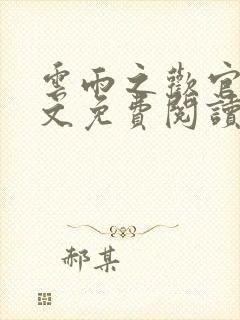 雲雨之歡官
文免費閱讀
郝某